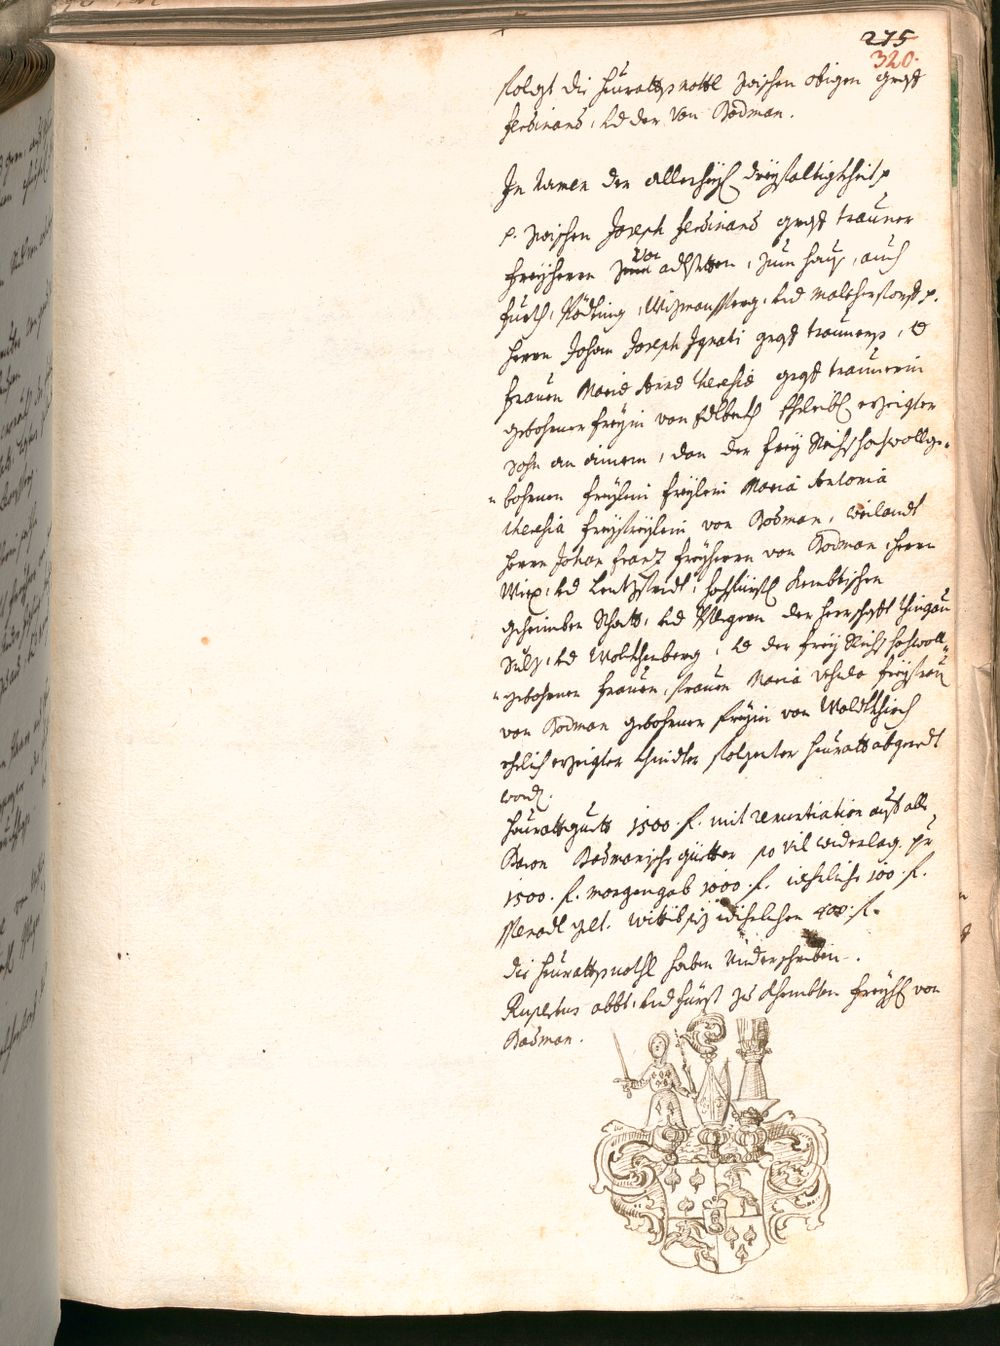 275
320.
folgt die heuratts nottl zwischen obigen graff
ferdinand, und der von Bodman.
In namen der allerheyl dreyfaltigkheit p
p. zwischen Joseph ferdinand graff trauner
freyherrn von adlstetten, zum hauß, auch
furth, und
herrn Johan Joseph Ignati graff trauners, und
frauen Maria Anna Theresia graff traunerin
gebohrner freyin von ehelich erzeigter
sohn an ainem, dan der frey Reichs hochwollge-
bohrnen freylein freylein Maria Antonia
Theresia freyfreylein von Bodman, weilandt
herrn Johan Frantz freyherrn von Bodman, herrn
hochfürstl Kembtischen
geheimben Rhatts, und Pflegern der herrschafft Thingau
und Wolkhenberg, und der frey Reichs hochwoll-
gebohrnen frauen, frauen Maria freyfrau
von Bodman gebohrner freyin von Waldtkhirch
ehelich erzeigter thindler folgenter heuratt abgeredt
word.
heurattguett 1500 f. mit renuntiation auf alle
Baron Bodmanische güetter so vil widerlag pr
1500. f. morgengab 1000 f. iehrliche 100. f.
gelt. wittibsiz iehrlichen 400. f.
die heuratts nottl haben underschriben.
Rupertus abbt, und fürst zu Khembten freyh von
Bodman.